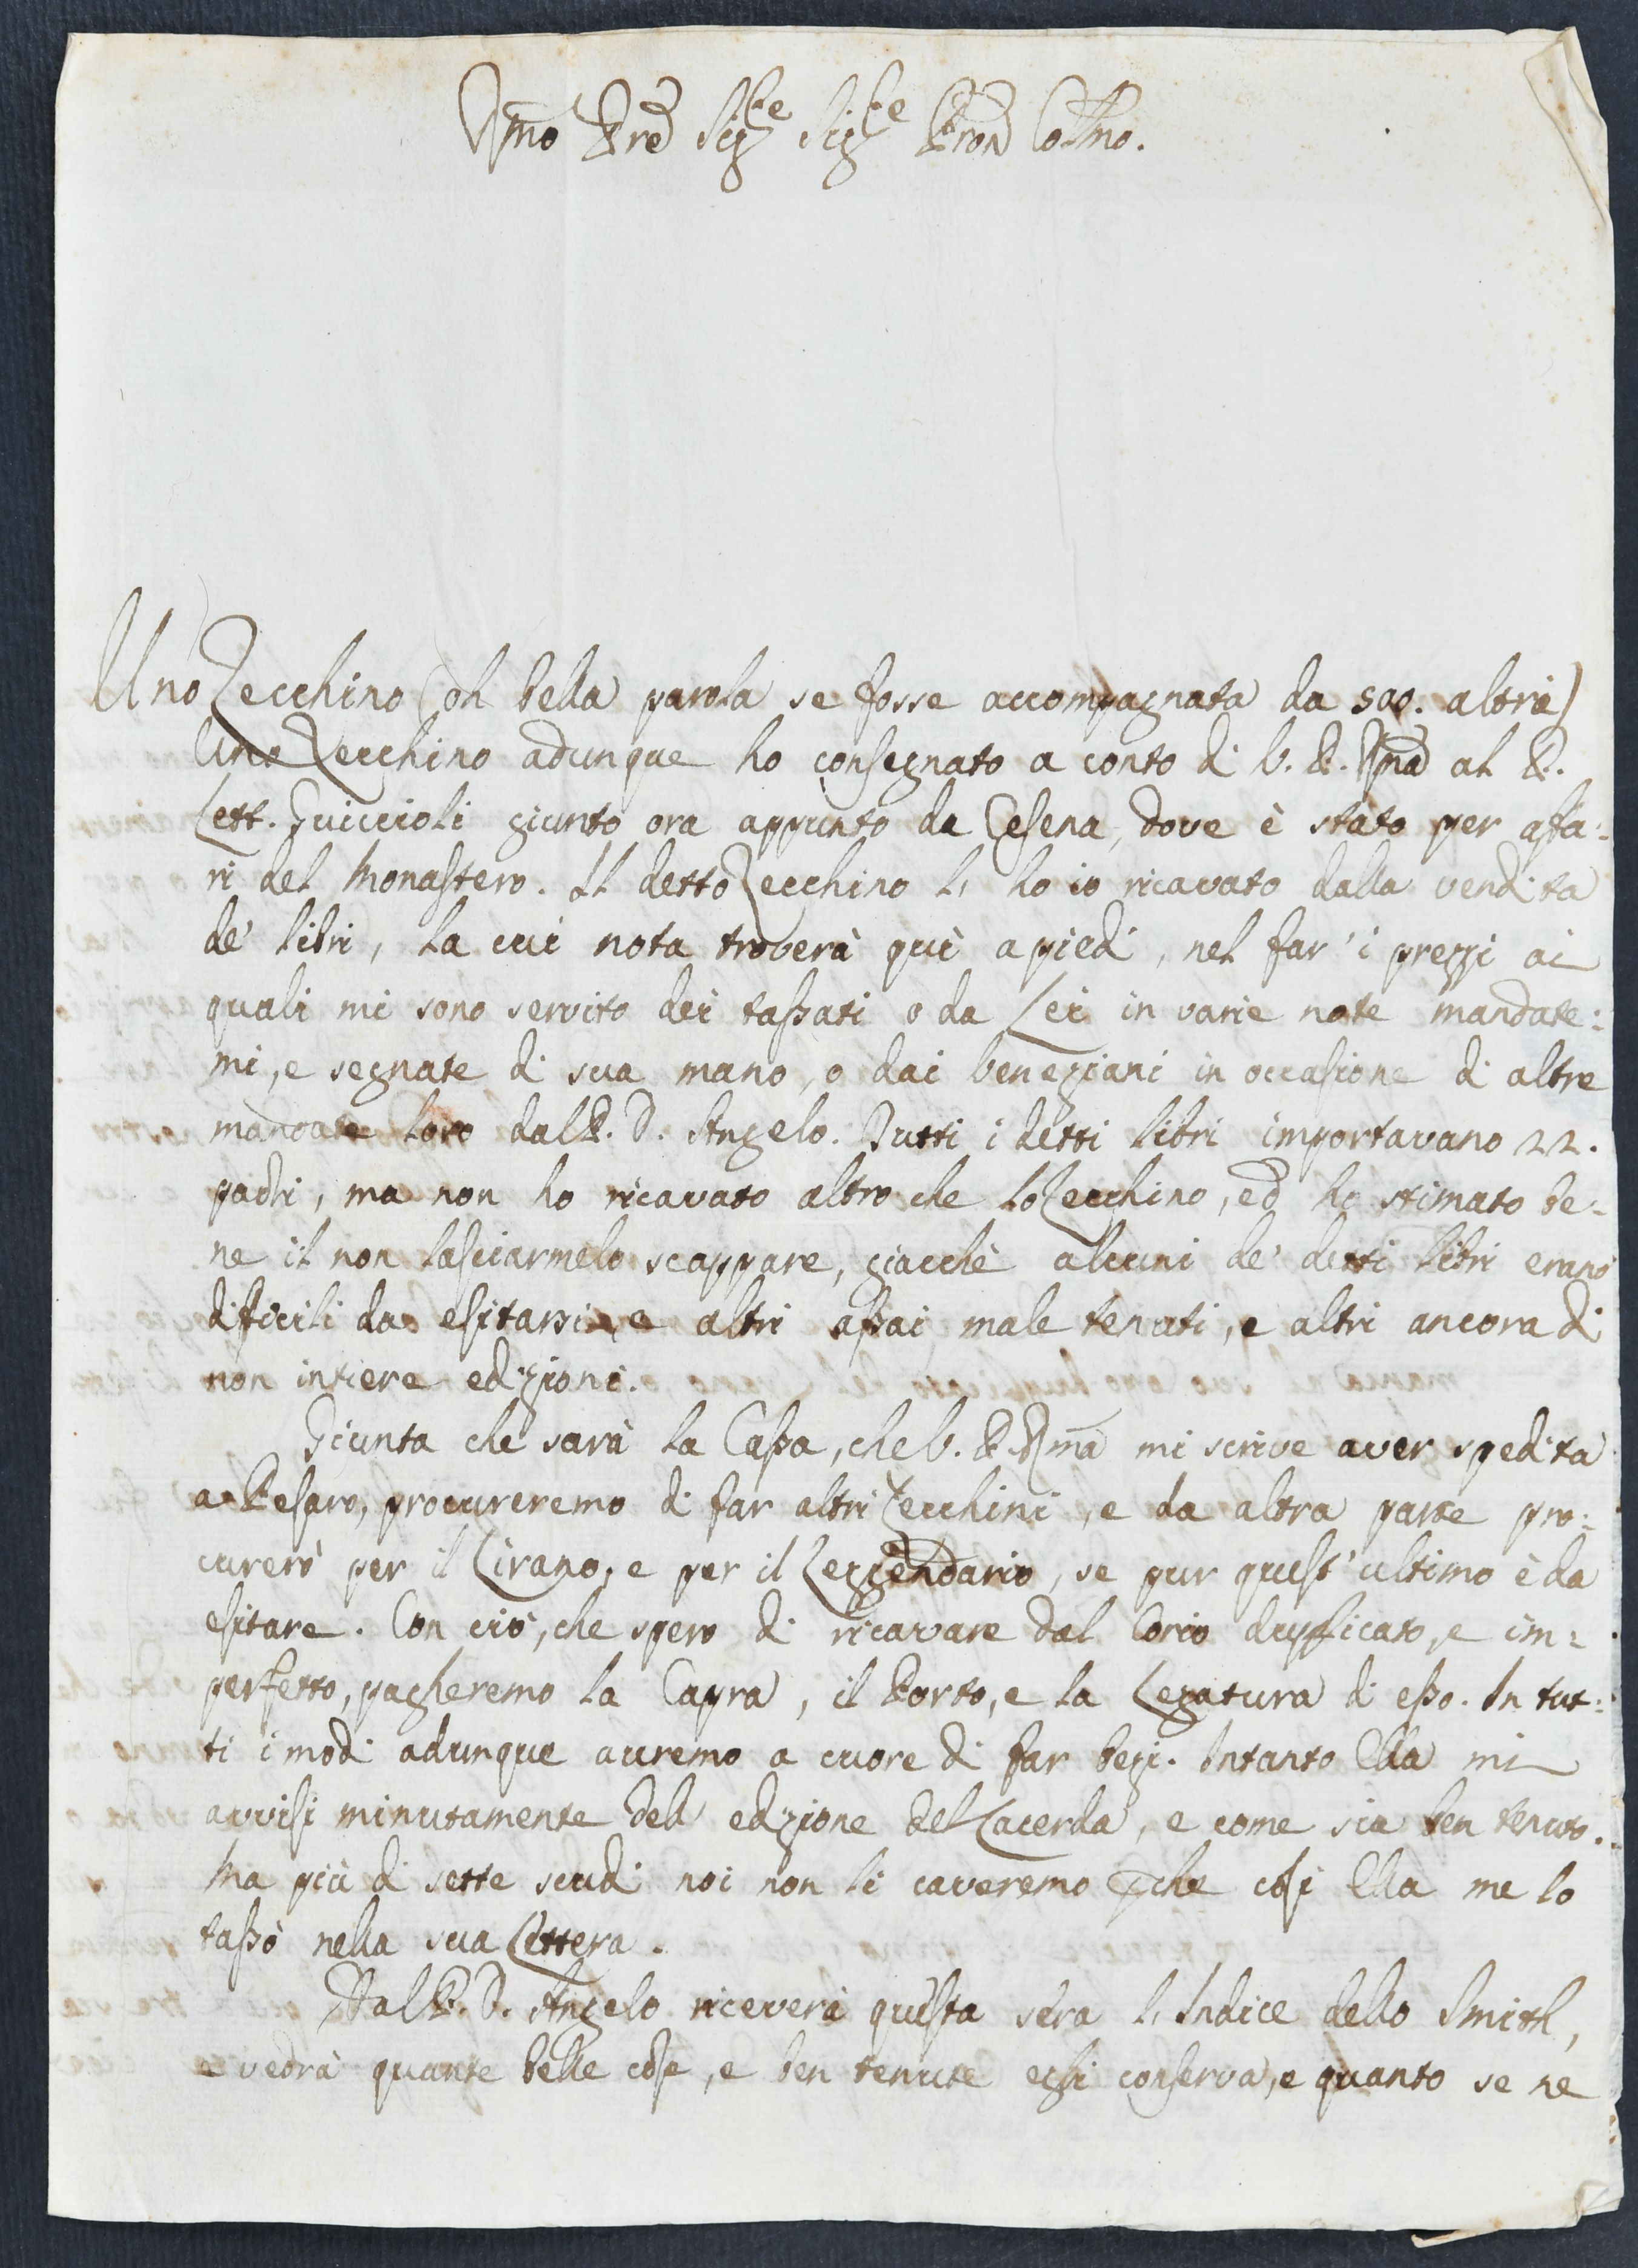 Rmo Pre Sigre Sigre Pron Colmo.
Uno Zecchino (oh bella parola se fosse accompagnata da 500. altri)
Uno Zecchino adunque ho consegnato a conto di V. P. Rma al P.
Lett. Guiccioli giunto ora appunto da Cesena, dove è stato per affa:
ri del Monastero. Il detto Zecchino l' ho io ricavato dalla vendita
de' libri, la cui nota troverà quì a piedi, nel far' i prezzi ai
quali mi sono servito dei tassati o da Lei in varie note mandate:
mi, e segnate di sua mano, o dai Veneziani in occasione di altre
mandate loro dal P. D. Angelo. Tutti i detti libri importavano 22.
paoli, ma non ho ricavato altro che lo Zecchino, ed ho stimato be:
ne il non lasciarmelo scappare, giacchè alcuni de' detti libri erano
difficili da esitarsi, e altri assai male tenuti, e altri ancora di
non intiere edizioni.
Giunta che sarà la Cassa, che V. P. Rma mi scrive aver spedita
a Pesaro, procureremo di far altri Zecchini, e da altra parte pro:
curerò per il Lirano, e per il Leggendario, se pur quest' ultimo è da
esitare. Con ciò, che spero di ricavare dal Corio dupplicato, e im:
perfetto, pagheremo la Capra, il Porto, e la Legatura di esso. In tut:
ti i modi adunque avremo a cuore di far bezi. Intanto Ella mi
avvisi minutamente dell' edizione del Lacerda, e come sia ben tenuto.
Ma più di sette scudi noi non li caveremo pche così Ella me lo
tassò nella sua Lettera.
Dal P. D. Angelo riceverà questa sera l' Indice dello Smith,
e vedrà quante belle cose, e ben tenute egli conserva, e quanto se ne